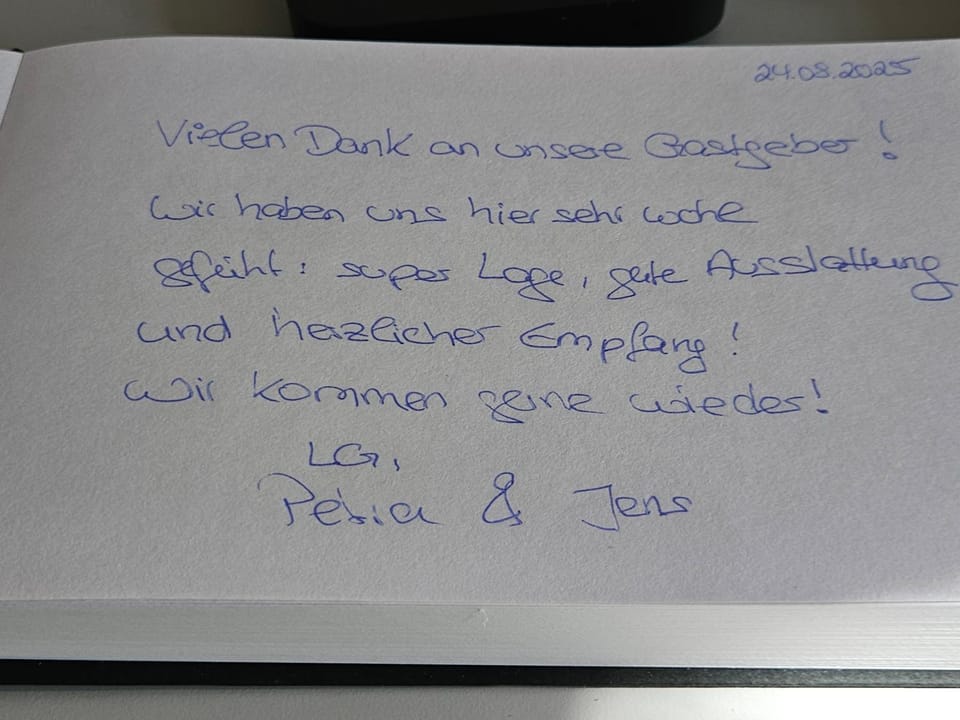 24.08.2025
Vielen Dank an unsere Gastgeber!
Wir haben uns hier sehr wohl
gefühlt: super Lage, gute Ausstattung
und herzlicher Empfang!
Wir kommen gerne wieder!
LG,
Petra & Jens